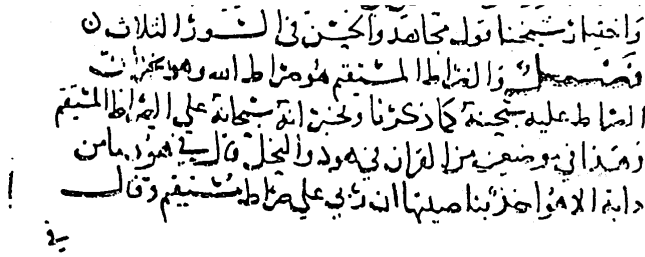 واختيار شيخنا قول مجاهد والحسن في السور الثلاث ن
فصل والصراط المستقيم هو صراط الله وهو يخبر ان
الصراط عليه سبحانه كما ذكرنا ويخبر انه سبحانه على الصراط المستقيم
وهذا في موضعين من القران في هود والنحل قال في هود ما من
دابة الا هو اخذ بناصيتها ان ربي علي صراط مستقيم وقال
في